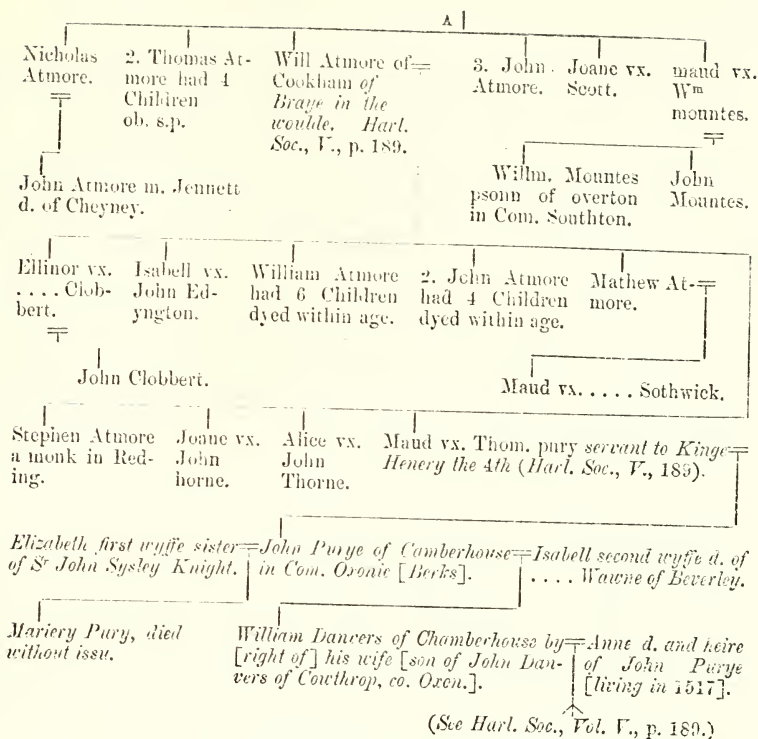 A
Nicholas
Atmore.
2. Thomas At-
more had 4
Children
ob. s.p.
Will Atmore of
Cookham of
Braye in the
woulde. Harl.
Soc., V., p. 189.
3. John
Atmore.
Joane vx.
Scott.
maud vx.
Wm
mountes.
John Atmore m. Jennett
d. of Cheyney.
Willm. Mountes
psonn of overton
in Com. Southton.
John
Mountes.
Ellinor vx.
.... Clob-
bert.
Isabell vx.
John Ed-
yngton.
William Atmore
had 6 Children
dyed within age.
2. John Atmore
had 4 Children
dyed within age.
Mathew At-
more.
John Clobbert.
Maud vx. .... Sothwick.
Stephen Atmore
a monk in Red-
ing.
Joane vx.
John
horne.
Alice vx.
John
Thorne.
Maud vx. Thom. pury servant to Kinge
Henery the 4th (Harl. Soc., V., 189).
Elizabeth first wyffe sister
of Sr John Sysley Knight.
John Purye of Camberhouse
in Com. Oxonie [Berks].
Isabell second wyffe d. of
.... Wawne of Beverley.
Mariery Pury, died
without issu.
William Dancers of Chamberhouse by
[right of] his wife [son of John Dan-
vers of Cowthrop, co. Oxon.].
Anne d. and heire
of John Purye
[living in 1517].
(See Harl. Soc., Vol. V., p. 189.)